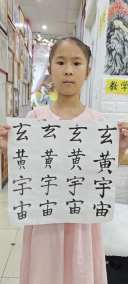 玄玄玄玄
黄黄黄黄
宇宇宇宇
宙宙宙宙
教学